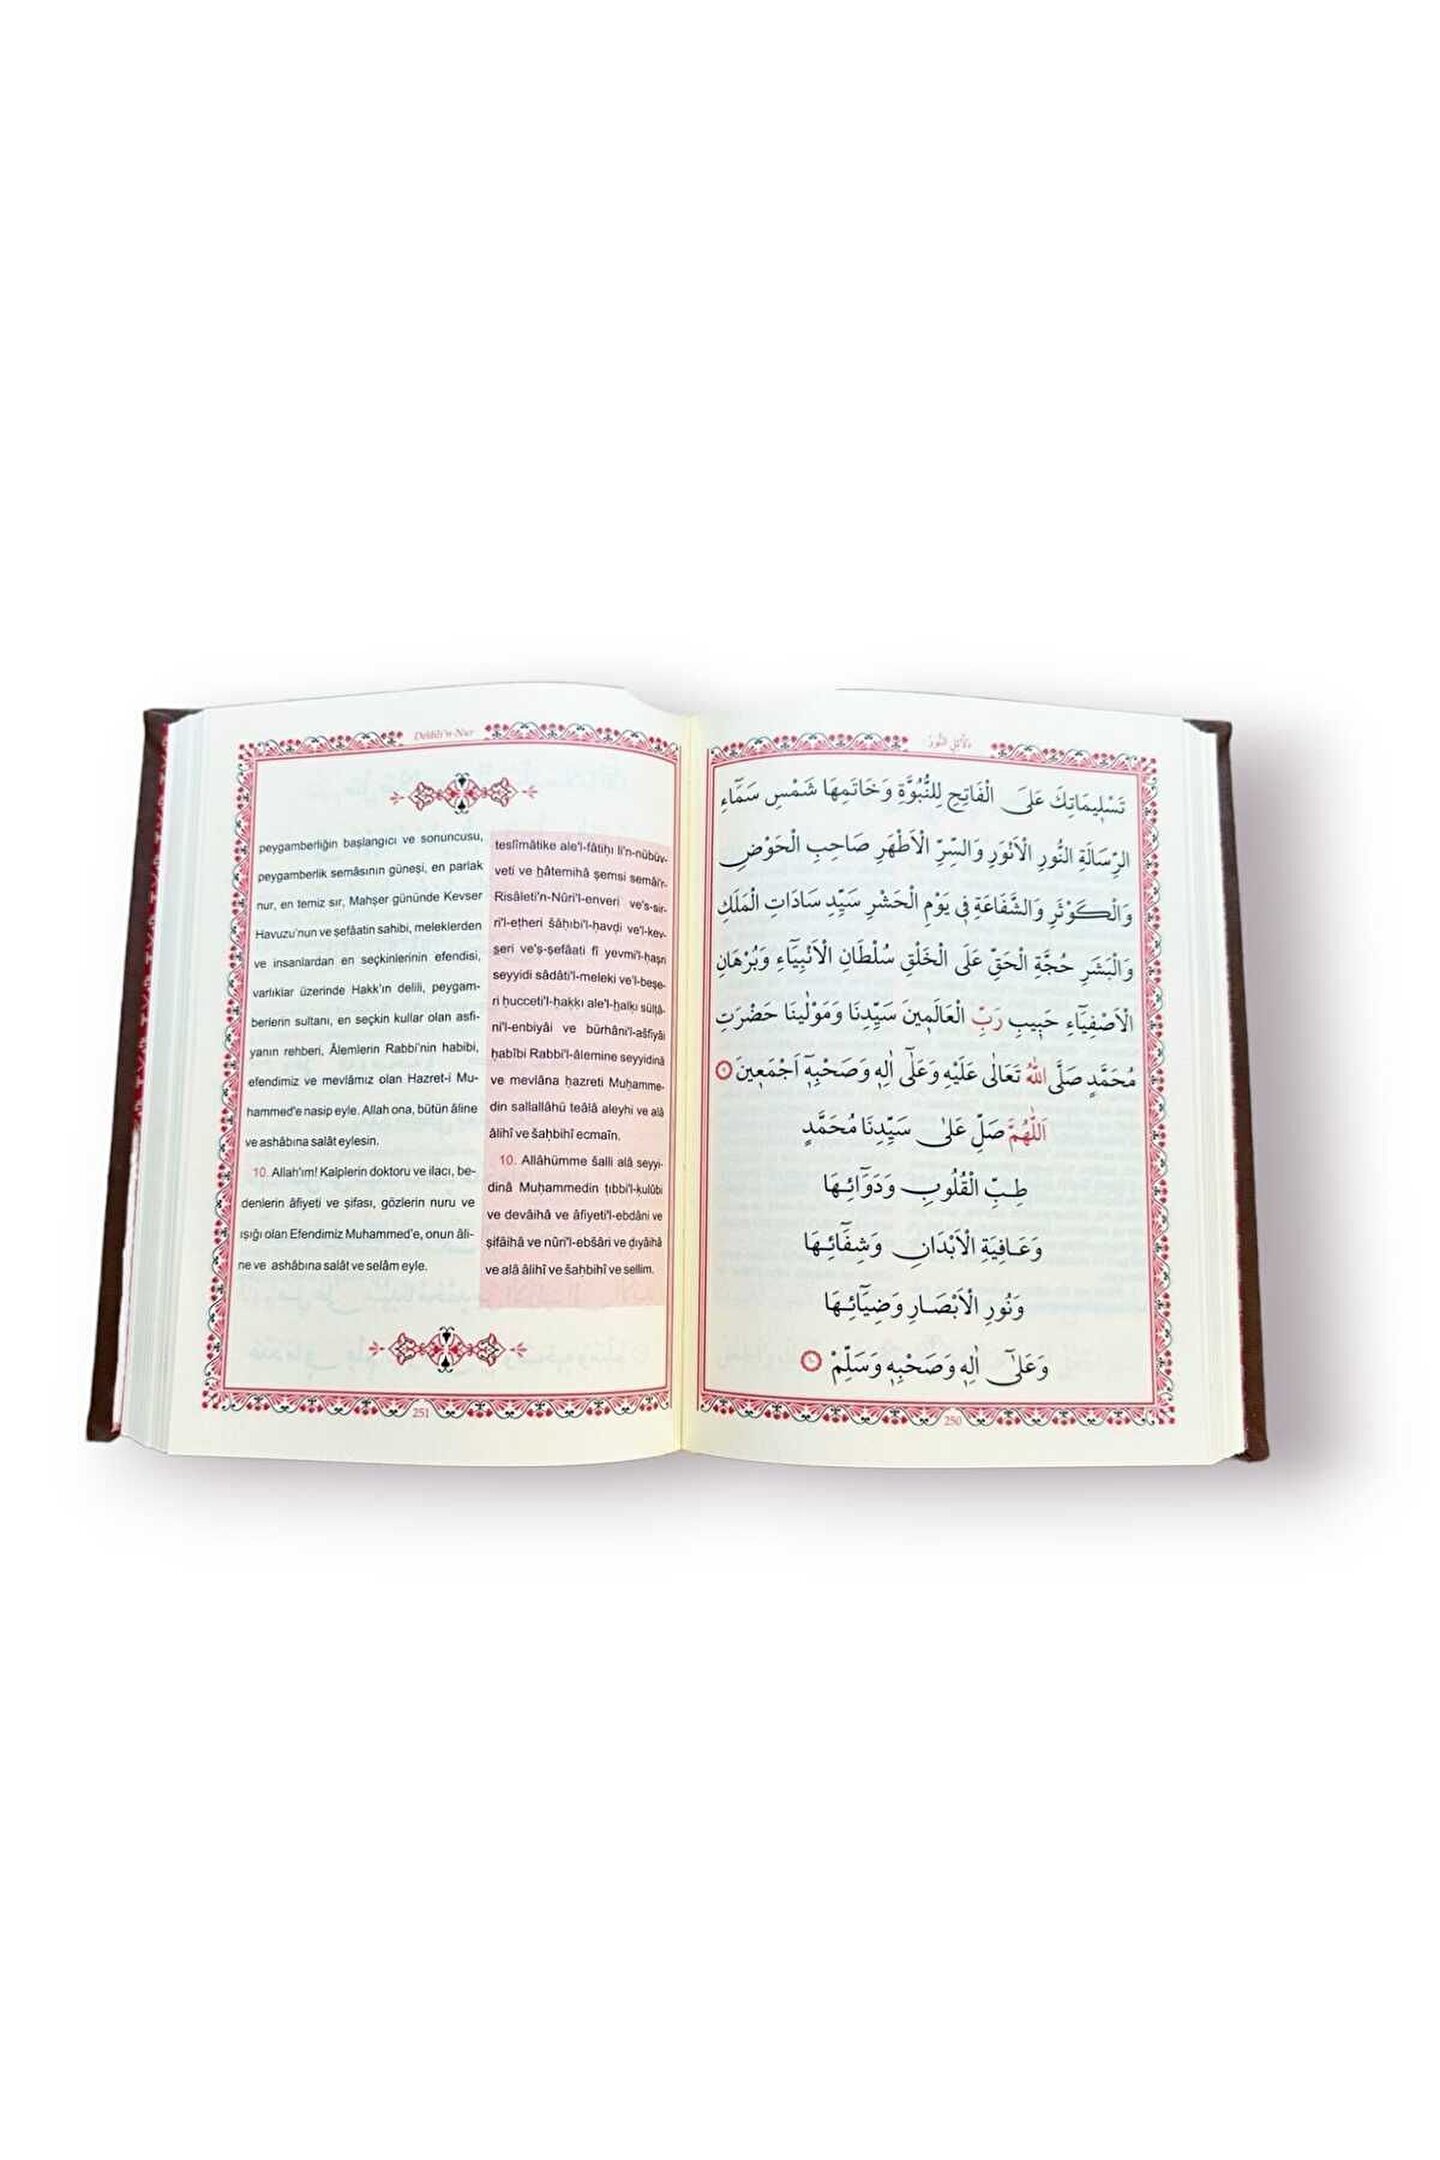 دَلَائِلُ النُّورِ
تَسْلِيمَاتِكَ عَلَى الْفَاتِحِ لِلنُّبُوَّةِ وَخَاتَمِهَا شَمْسِ سَمَٓاءِ
الرِّسَالَةِ النُّورِ الْاَنْوَرِ وَالسِّرِّ الْاَطْهَرِ صَاحِبِ الْحَوْضِ
وَالْكَوْثَرِ وَالشَّفَاعَةِ فِي يَوْمِ الْحَشْرِ سَيِّدِ سَادَاتِ الْمَلَكِ
وَالْبَشَرِ حُجَّةِ الْحَقِّ عَلَى الْخَلْقِ سُلْطَانِ الْاَنْبِيَٓاءِ وَبُرْهَانِ
الْاَصْفِيَٓاءِ حَبِيبِ رَبِّ الْعَالَمِينَ سَيِّدِنَا وَمَوْلٰينَا حَضْرَتِ
مُحَمَّدٍ صَلَّى اللّٰهُ تَعَالٰى عَلَيْهِ وَعَلٰٓى اٰلِهِ وَصَحْبِهِٓ اَجْمَعِينَ ٩
اَللّٰهُمَّ صَلِّ عَلٰى سَيِّدِنَا مُحَمَّدٍ
طِبِّ الْقُلُوبِ وَدَوَٓائِهَا
وَعَافِيَةِ الْاَبْدَانِ وَشِفَٓائِهَا
وَنُورِ الْاَبْصَارِ وَضِيَٓائِهَا
وَعَلٰٓى اٰلِهِ وَصَحْبِهِ وَسَلِّمْ ١٠
250
Delâili'n-Nur
peygamberliğin başlangıcı ve sonuncusu,
peygamberlik semâsının güneşi, en parlak
nur, en temiz sır, Mahşer gününde Kevser
Havuzu'nun ve şefâatin sahibi, meleklerden
ve insanlardan en seçkinlerinin efendisi,
varlıklar üzerinde Hakk'ın delili, peygam-
berlerin sultanı, en seçkin kullar olan asfi-
yanın rehberi, Âlemlerin Rabbi'nin habibi,
efendimiz ve mevlâmız olan Hazret-i Mu-
hammed'e nasip eyle. Allah ona, bütün âline
ve ashâbına salât eylesin.
10. Allah'ım! Kalplerin doktoru ve ilacı, be-
denlerin âfiyeti ve şifası, gözlerin nuru ve
ışığı olan Efendimiz Muhammed'e, onun âli-
ne ve ashâbına salât ve selâm eyle.
teslîmâtike ale'l-fâtiḥı li'n-nübüv-
veti ve ḫâtemihâ şemsi semâi'r-
Risâleti'n-Nûri'l-enveri ve's-sir-
ri'l-eṭheri šâḥıbi'l-ḥavḍi ve'l-kev-
šeri ve'ş-şefâati fî yevmi'l-ḥaşri
seyyidi sâdâti'l-meleki ve'l-beşe-
ri ḥucceti'l-ḥaḳḳı ale'l-ḫalḳı sülṭâ-
ni'l-enbiyâi ve bürhâni'l-ašfiyâi
ḥabîbi Rabbi'l-âlemine seyyidinâ
ve mevlâna ḥazreti Muḥamme-
din sallallâhü teâlâ aleyhi ve alâ
âlihî ve šaḥbihî ecmaîn.
10. Allâhümme šalli alâ seyyi-
dinâ Muḥammedin ṭıbbi'l-ḳulûbi
ve devâihâ ve âfiyeti'l-ebdâni ve
şifâihâ ve nûri'l-ebšâri ve ḍıyâihâ
ve alâ âlihî ve šaḥbihî ve sellim.
251